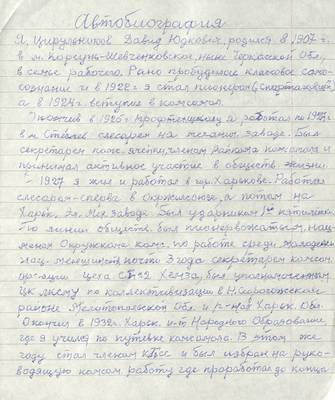 Автобиография
Я, Цирульников Давид Юдкович, родился в 1907 г.
в м. Корсунь-Шевченковском, ныне Черкасской Обл.,
в семье рабочего. Рано пробудилось классовое само-
сознание и в 1922 г. я стал пионером (спартаковцем),
а в 1924 г. вступил в комсомол.
Окончив в 1925 г. Профтехшколу, я работал по 1927 г.
в м. слесарем на механич. заводе. Был
секретарем комс. ячейки, членом Райкома комсомола и
принимал активное участие в обществ. жизни.
С 1927 я жил и работал в гор. Харькове. Работал
слесарем - сперва в а потом на
Харьк. Эл. Мех. Заводе. Был ударником 1й пятилетки.
По линии обществ. был пионервожатым, нац-
меном Окружкома комс. по работе среди молодежи
нац. меньшинств, почти 3 года секретарем комсом.
организации цеха ХЭМЗа, был уполномоченным
ЦК ЛКСМУ по коллективизации в Н. Серогожском
районе Мелитопольской Обл. и р-нов Харьк. Обл.
Окончил в 1932 г. Харьк. ин-т Народного Образования,
где я учился по путевке комсомола. В этом же
году стал членом КПСС и был избран на руко-
водящую комсом. работу, где проработал до конца